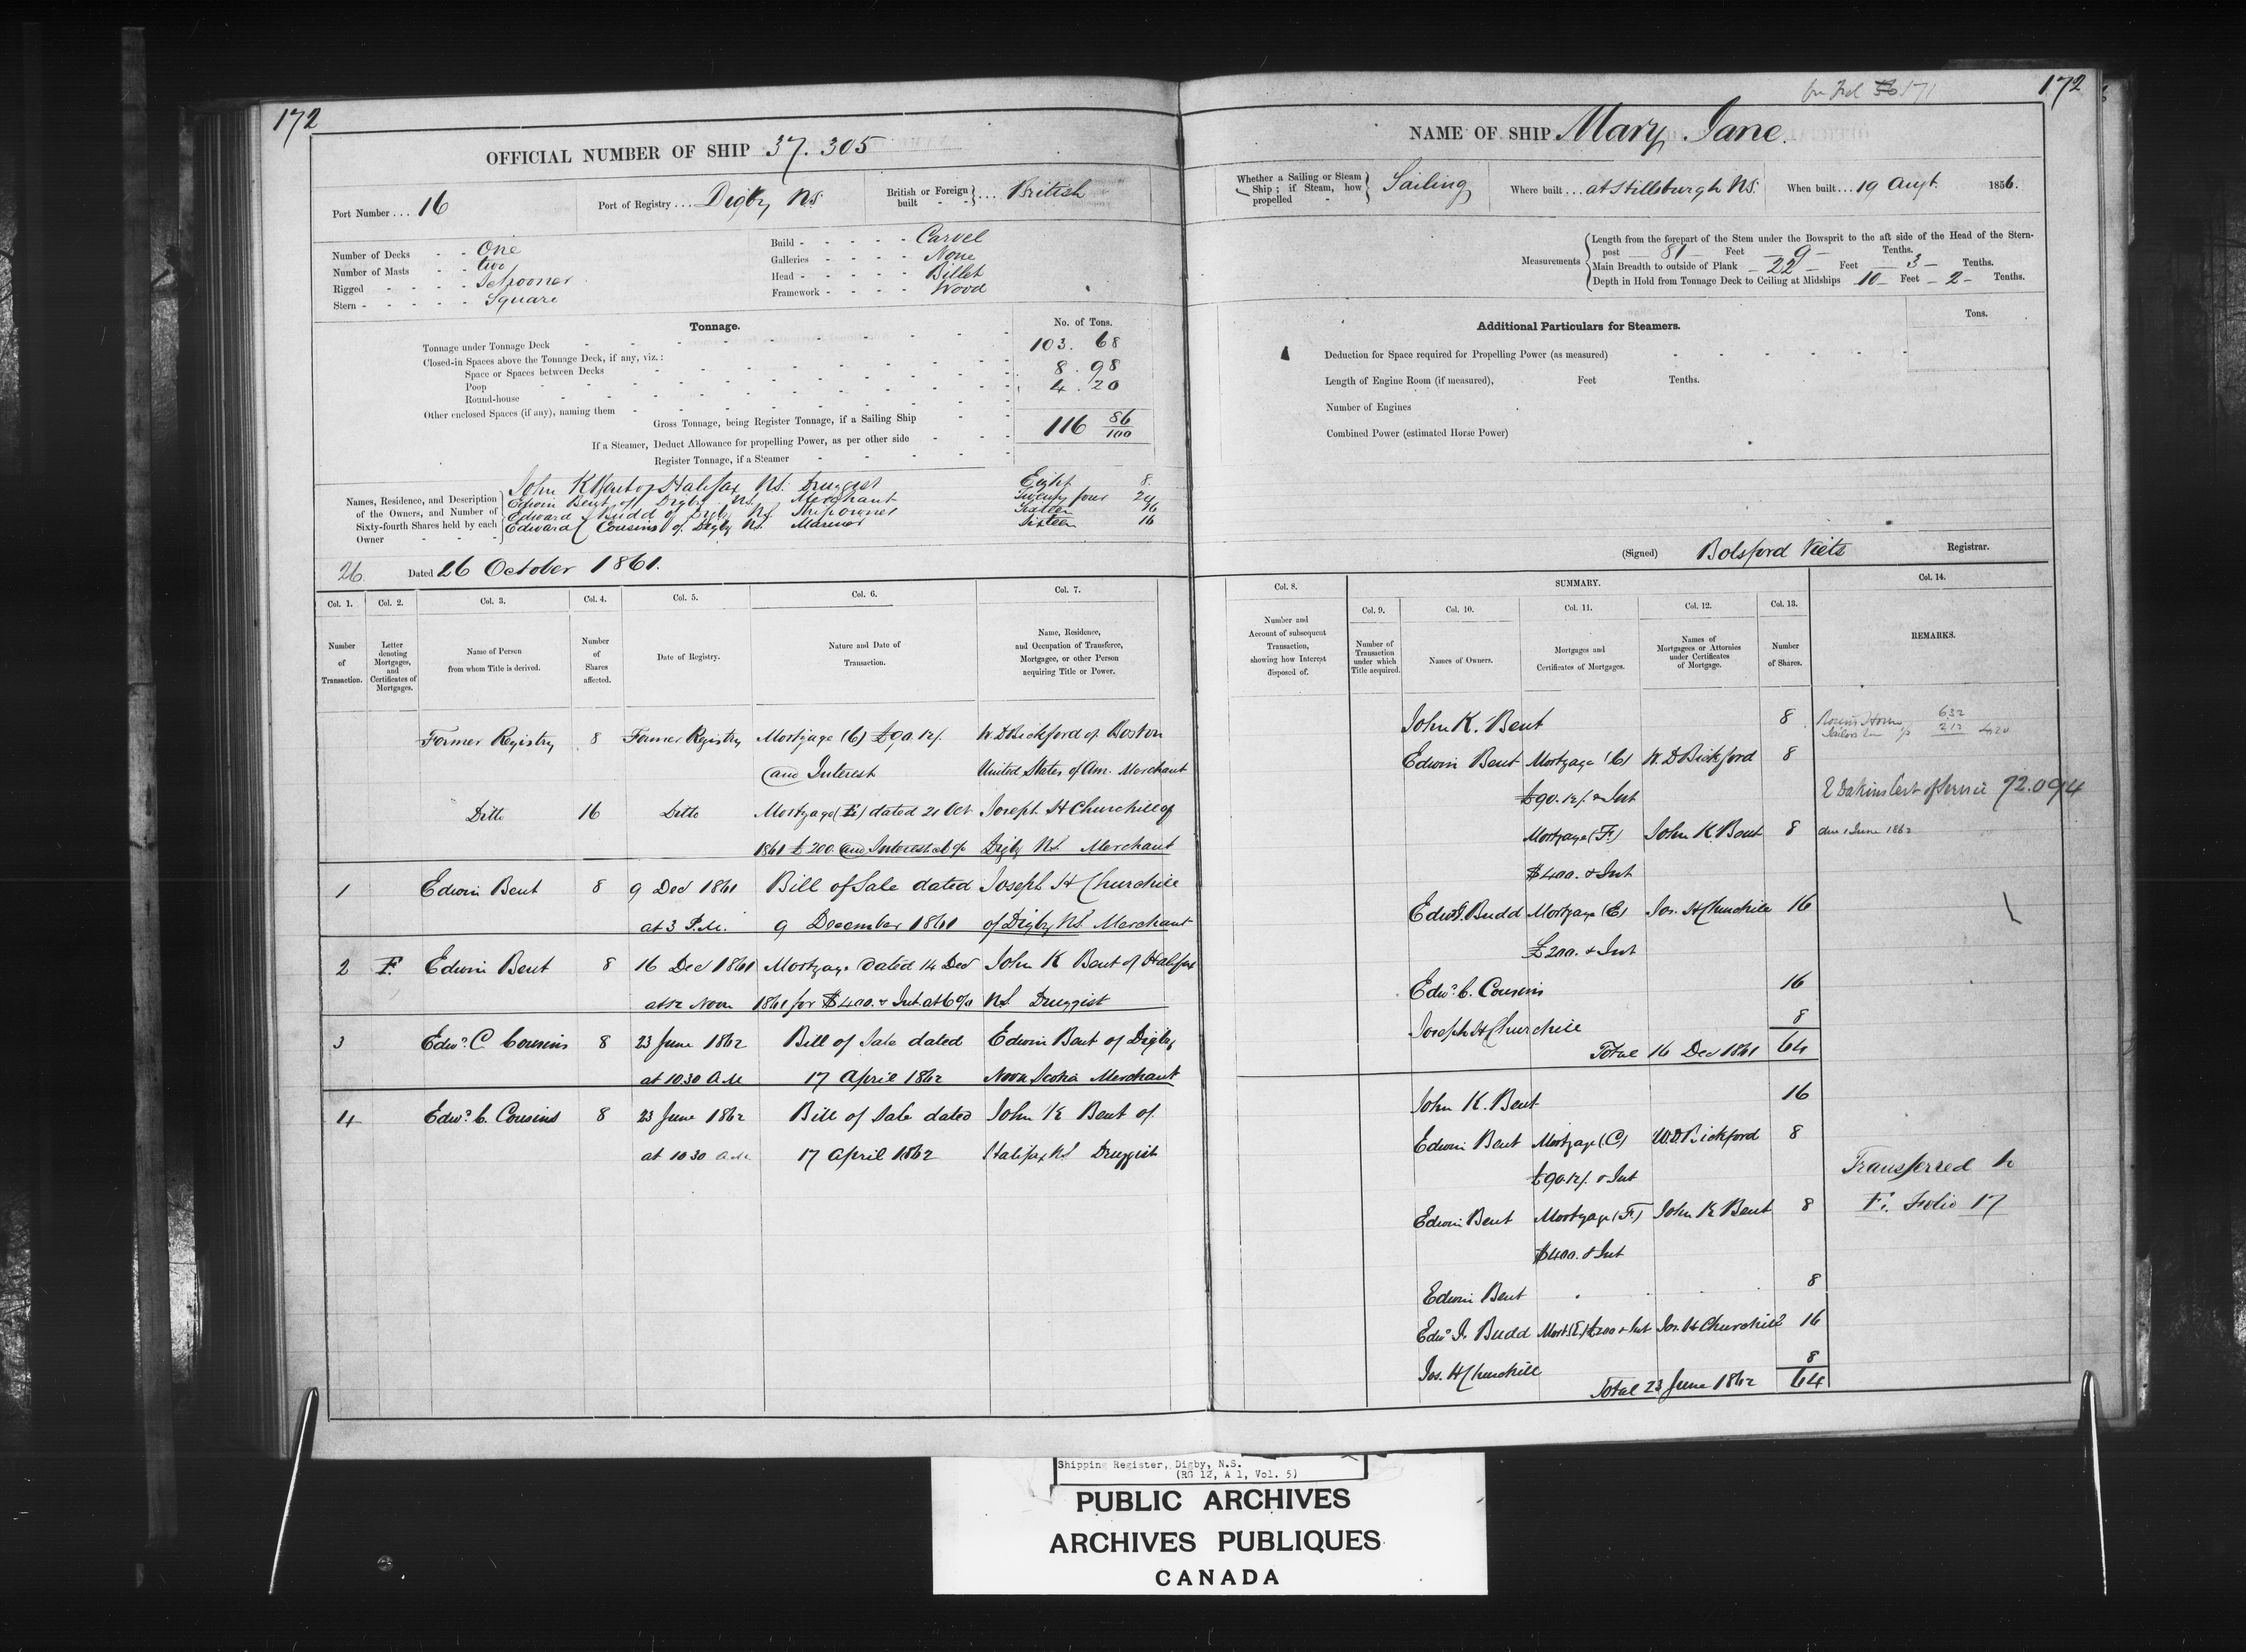 172
OFFICIAL NUMBER OF SHIP 37.305
Port Number ... 16
Port of Registry ... Digby NS
British or Foreign built - - } .... British
Number of Decks - - One
Number of Masts - - two
Rigged - - - - Schooner
Stern - - - - - Square
Build - - - - - Carvel
Galleries - - - - None
Head - - - - - Billet
Framework - - - - Wood
Tonnage.
No. of Tons.
Tonnage under Tonnage Deck 103. 68
Closed-in Spaces above the Tonnage Deck, if any, viz.:
Space or Spaces between Decks 8. 98
Poop 4. 20
Round-house
Other enclosed Spaces (if any), naming them
Gross Tonnage, being Register Tonnage, if a Sailing Ship 116 86/100
If a Steamer, Deduct Allowance for propelling Power, as per other side
Register Tonnage, if a Steamer
Names, Residence, and Description of the Owners, and Number of Sixty-fourth Shares held by each Owner
John K Bent of Halifax NS. Druggist Eight 8
Edwin Bent of Digby NS. Merchant Twenty four 24
Edward J Budd of Digby NS Shipowner Sixteen 16
Edward C Cousins of Digby NS. Mariner Sixteen 16
26
Dated 26 October 1861.
Col. 1. Col. 2. Col. 3. Col. 4. Col. 5. Col. 6. Col. 7.
Number of Transaction.
Letter denoting Mortgages, and Certificates of Mortgages.
Name of Person from whom Title is derived.
Number of Shares affected.
Date of Registry.
Nature and Date of Transaction.
Name, Residence, and Occupation of Transferee, Mortgagee, or other Person acquiring Title or Power.
Former Registry 8 Former Registry Mortgage (C) £90.12/. W. D Bickford of Boston
and Interest United States of Am. Merchant
Ditto 16 Ditto Mortgage (E) dated 21 Oct Joseph H Churchill of
1861 £200. and Interest at 6% Digby NS. Merchant
1 Edwin Bent 8 9 Dec 1861 Bill of Sale dated Joseph H Churchill
at 3 P.M. 9 December 1861 of Digby NS. Merchant
2 F. Edwin Bent 8 16 Dec 1861 Mortgage dated 14 Dec John K Bent of Halifax
at 12 Noon 1861 for $400. & Int at 6% NS Druggist
3 Edwd. C Cousins 8 23 June 1862 Bill of Sale dated Edwin Bent of Digby
at 10.30 AM 17 April 1862 Nova Scotia Merchant
4 Edwd. C. Cousins 8 23 June 1862 Bill of Sale dated John K Bent of
at 10 30 AM 17 April 1862 Halifax NS Druggist
171
172
NAME OF SHIP Mary Jane.
Whether a Sailing or Steam Ship; if Steam, how propelled - } Sailing
Where built ... at Hillsburgh NS.
When built ... 19 Augt. 1856.
Measurements
Length from the forepart of the Stem under the Bowsprit to the aft side of the Head of the Stern-
post 81 Feet 9 Tenths.
Main Breadth to outside of Plank 22 Feet 3 Tenths.
Depth in Hold from Tonnage Deck to Ceiling at Midships 10 Feet 2 Tenths.
Additional Particulars for Steamers.
Tons.
Deduction for Space required for Propelling Power (as measured)
Length of Engine Room (if measured), Feet Tenths.
Number of Engines
Combined Power (estimated Horse Power)
(Signed) Botsford Viets Registrar.
Col. 8. SUMMARY. Col. 14.
Col. 9. Col. 10. Col. 11. Col. 12. Col. 13.
Number and Account of subsequent Transaction, showing how Interest disposed of.
Number of Transaction under which Title acquired.
Names of Owners.
Mortgages and Certificates of Mortgages.
Names of Mortgagees or Attornies under Certificates of Mortgage.
Number of Shares.
REMARKS.
John K. Bent 8
632
212 420
Edwin Bent Mortgage (C) W. D Bickford 8
£90.12/. & Int
E Dakins Cert of Service 72.094
Mortgage (F.) John K Bent 8 due 1 June 1862
$400. & Int
Edwd. J. Budd Mortgage (E) Jos. H Churchill 16
£200. & Int
Edwd. C. Cousins 16
Joseph H Churchill 8
Total 16 Dec 1861 64
John K. Bent 16
Edwin Bent Mortgage (C) W. D. Bickford 8
£90.12/. & Int
Transferred to
Edwin Bent Mortgage (F.) John K Bent 8 F. Folio 17
$400. & Int
Edwin Bent 8
Edwd. J. Budd Mort (E) £200 & Int Jos. H Churchill 16
Jos. H Churchill 8
Total 23 June 1862 64
Shipping Register, Digby, N.S.
(RG 12, A 1, Vol. 5)
PUBLIC ARCHIVES
ARCHIVES PUBLIQUES
CANADA